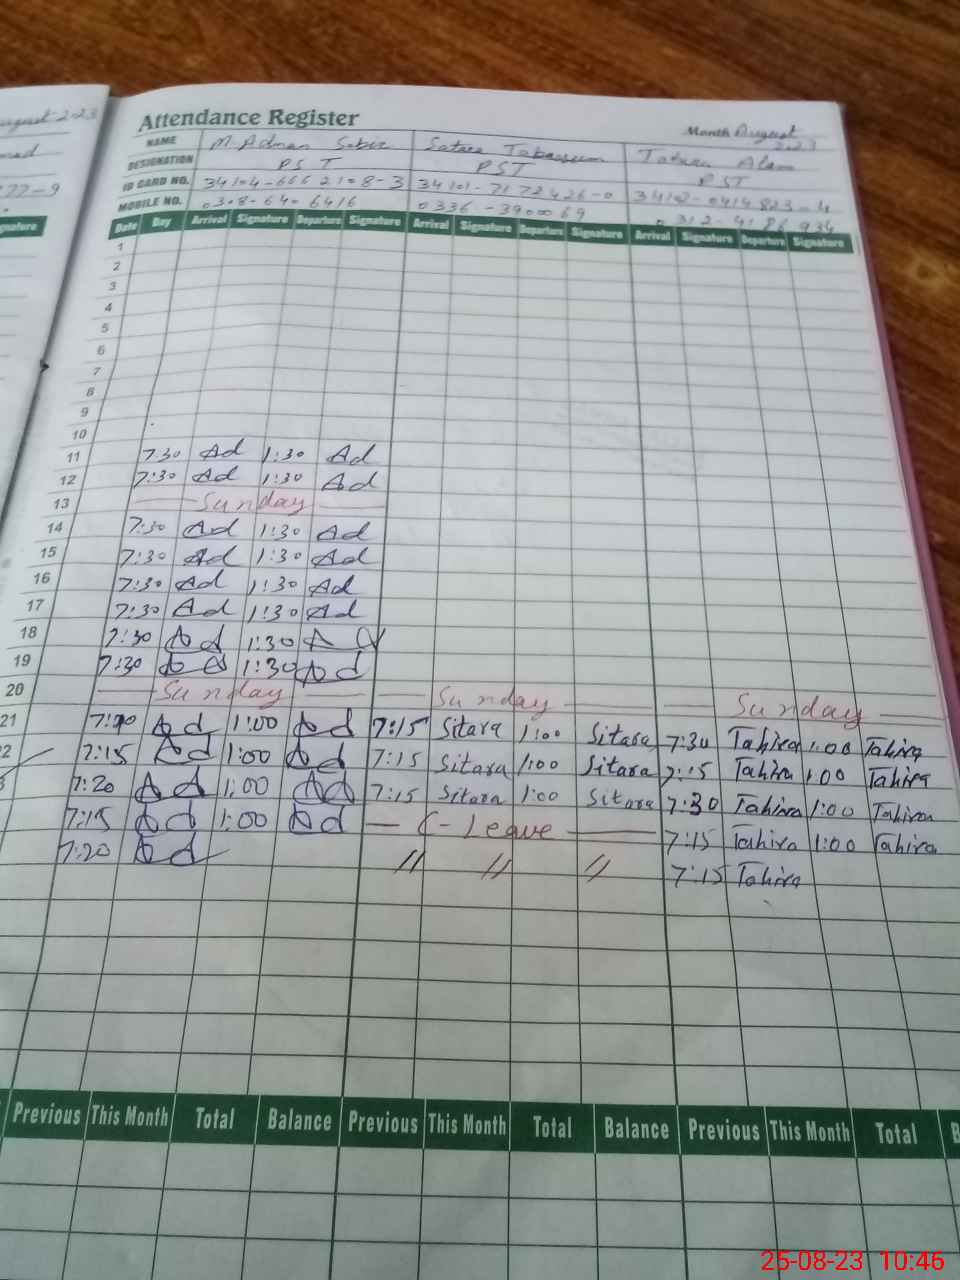 ugust 2023
Attendance Register
Month August 2023
NAME M. Adnan Sabir Satara Tabassum Tahira Alam
DESIGNATION PST PST PST
ID CARD NO. 34104-6662108-3 34101-7172426-0 34102-0414823-4
77-9
MOBILE NO. 0308-640 6416 0336-3900069 0312-4186934
gnature
Date Day Arrival Signature Departure Signature Arrival Signature Departure Signature Arrival Signature Departure Signature
1
2
3
4
5
6
7
8
9
10
11 7:30 Ad 1:30 Ad
12 7:30 Ad 1:30 Ad
13 Sunday
14 7:30 Ad 1:30 Ad
15 7:30 Ad 1:30 Ad
16 7:30 Ad 1:30 Ad
17 7:30 Ad 1:30 Ad
18 7:30 Ad 1:30 Ad
19 7:30 Ad 1:30 Ad
20 Sunday Sunday Sunday
21 Ad 1:00 Ad 7:15 Sitara 1:00 Sitara 7:30 Tahira 1:00 Tahira
2 7:15 Ad 1:00 Ad 7:15 Sitara 1:00 Sitara 7:15 Tahira 1:00 Tahira
7:20 Ad 1:00 Ad 7:15 Sitara 1:00 Sitara 7:30 Tahira 1:00 Tahira
7:15 Ad 1:00 Ad C-Leave 7:15 Tahira 1:00 Tahira
7:20 Ad // // // 7:15 Tahira
Previous This Month Total Balance Previous This Month Total Balance Previous This Month Total B
25-08-23 10:46